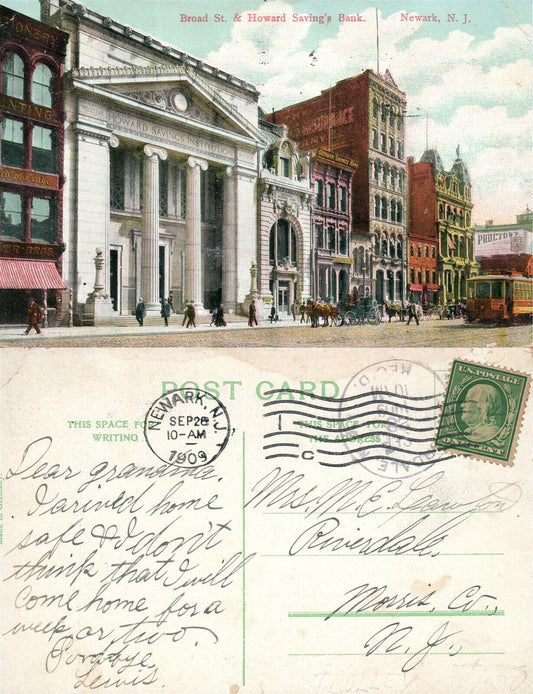 Broad St. & Howard Saving's Bank. Newark, N. J.
HOWARD SAVINGS INSTITUTION
INSURANCE
PROCTOR'S
POST CARD
THIS SPACE FOR
WRITING
THIS SPACE FOR
THE ADDRESS
NEWARK, N.J.
SEP 28
10-AM
1909
1
C
REC'D.
U.S. POSTAGE
ONE CENT
Dear grandma.
I arived home
safe & I don't
think that I will
come home for a
week or two.
Goodbye
Lewis.
Mrs. M. E.
Riverdale.
Morris, Co.,
N. J.,